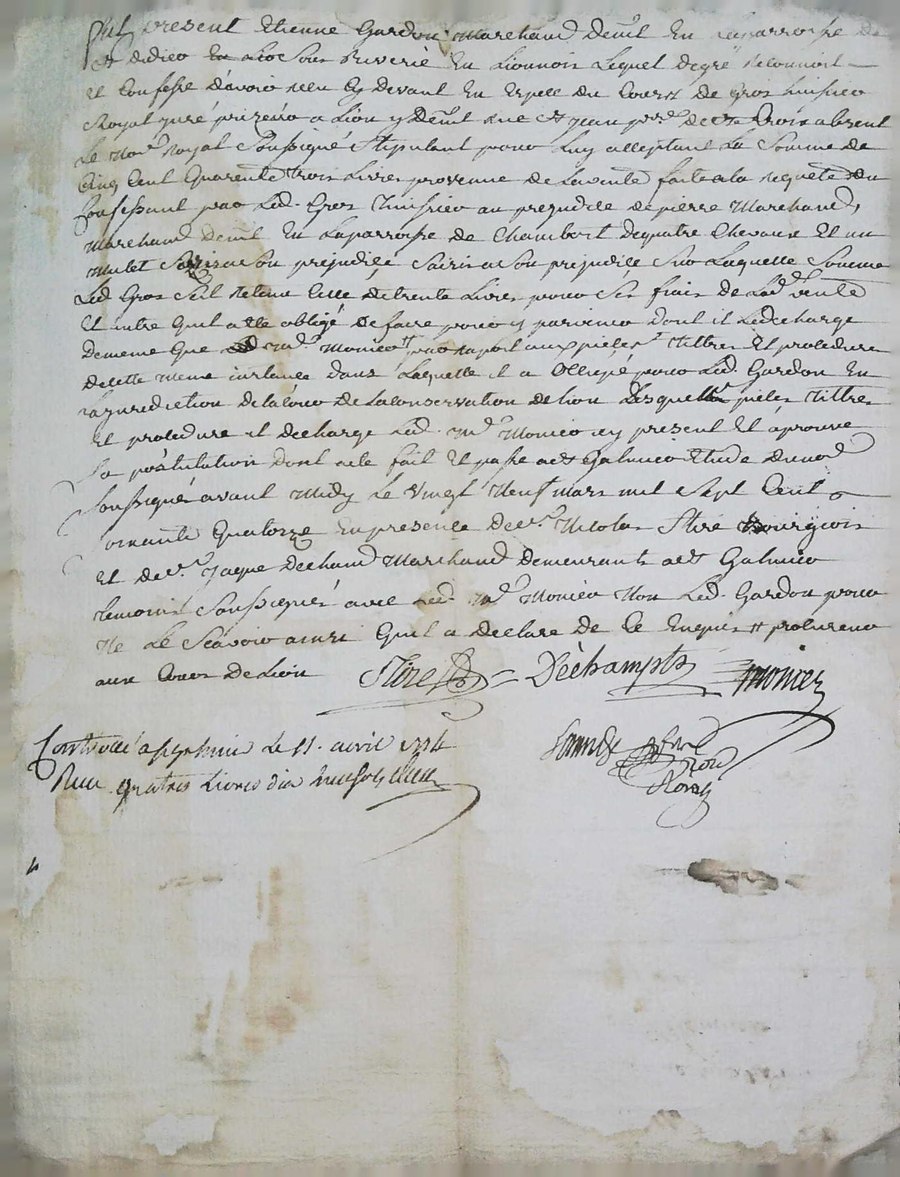 fut present Etienne Gardon Marchand demt En laparroisse de
st didier En Lioc Sous Riverie En Lionnois Lequel degré reconnoit
et Confesse davoir receu cy devant En Espece du Cours de gros huissier
Royal juré prizeur a Lion y demt rue st jean prse de ste Croix absent
Le Nore Royal Soussigné Stipulant pour Luy acceptant La Somme de
Cinq Cent quarente trois Livres provenue de Lavente faite ala requete du
Confessant par Led. Gros huissier au prejudice depierre Marchand,
Marchand demt En Laparroisse de Chambost dequatre Chevaux Et un
Mulet a Son prejudice Saizis a Son prejudice Sur Laquelle Somme
Led. Gros Sest retenu Celle detrente Livres pour Ses frais de Lade vente
Et autre quil a ete obligé de faire pour y parvenir dont il Ledecharge
dememe que Me Monier par raport aux pieces tittres Et procedure
decette meme instance dans Laquelle il a Occupé pour Led. Gardon En
Lajuridiction delacour de Laconservation de Lion Lesquelles pieces tittres
Et procedure il decharge Led. Me Monier cy present Et aprouve
Sa postulation dont acte fait Et passe ast Galmier Etude dunore
Soussigné avant Midy Le vingt Neuf mars mil Sept Cent
Soixante quatorze En presence de sr. Nicolas Stire Bourgeois
Et de sr. Jaque Dechand Marchand demeurants ast Galmier
temoins Soussignés avec Led. Me Monier Non Led. Gardon pour
Ne Le Scavoir ainsi quil a declare de Ce Enquis # procureur
aux Cours de Lion Stire Dèchampts Monier
Controllé a st galmier Le 11. avril 1774
Reçu quatres Livres dix
Nore
Royal